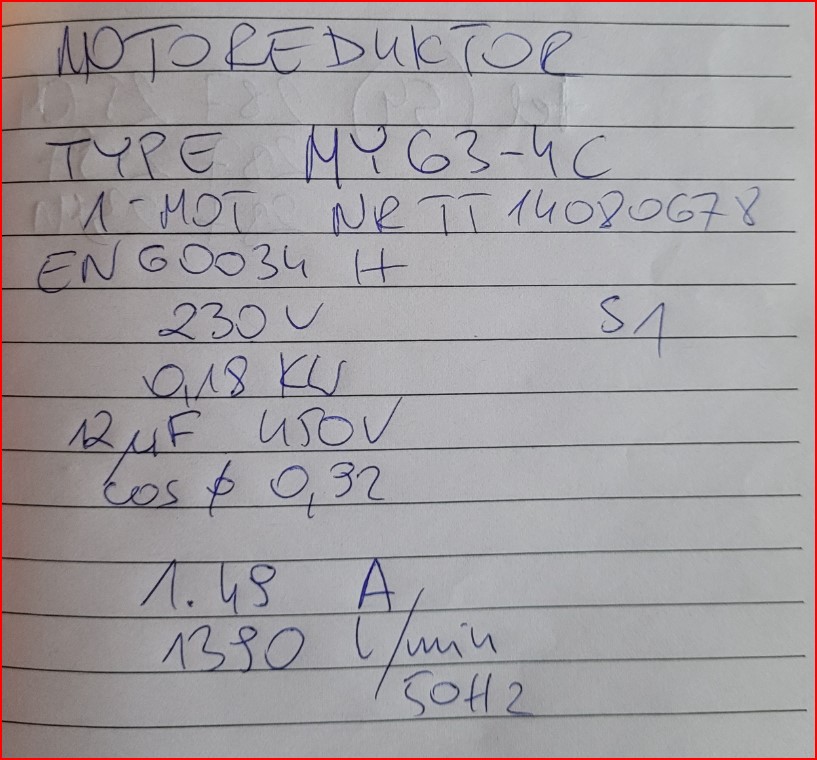 MOTOREDUKTOR
TYPE MY 63-4C
1-MOT NR TT 14080678
EN 60034 H
230 V S1
0,18 KW
12 µF 450V
cos φ 0,92
1.49 A
1390 1/min
50Hz